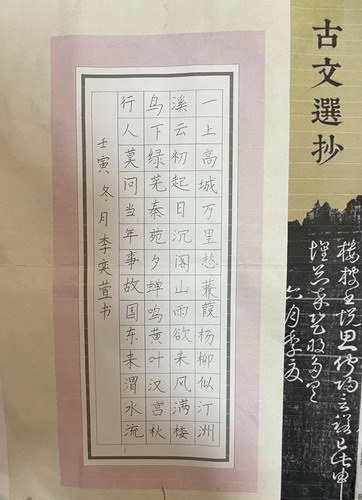 古文選抄
一上高城万里愁蒹葭杨柳似汀洲
溪云初起日沉阁山雨欲来风满楼
鸟下绿芜秦苑夕蝉鸣黄叶汉宫秋
行人莫问当年事故国东来渭水流
壬寅冬月李奕萱书